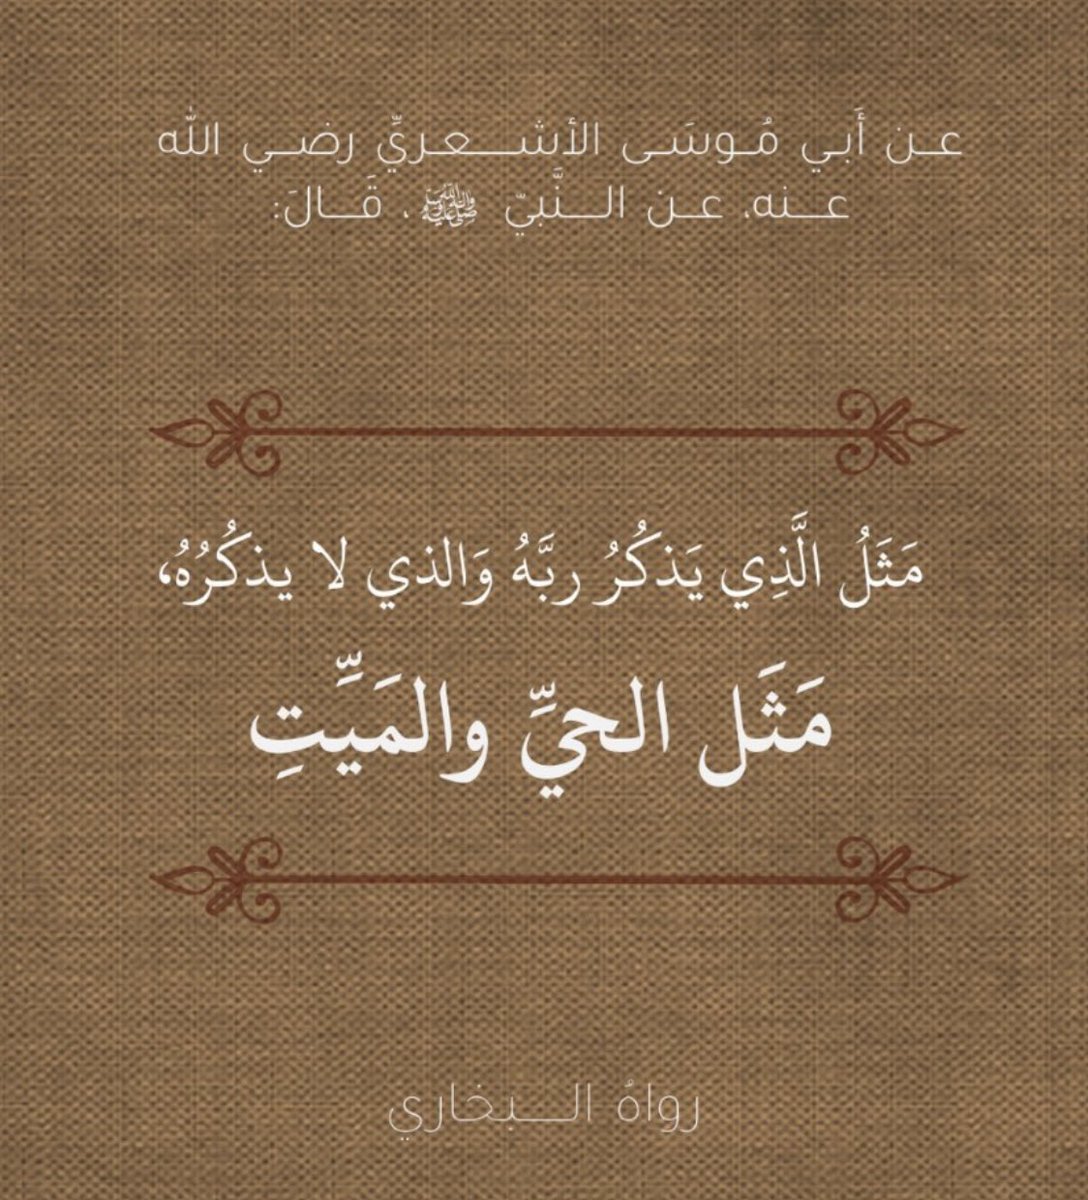 عن أَبي مُوسَى الأشعريِّ رضي الله
عنه، عن النَّبيّ ﷺ، قَالَ:
مَثَلُ الَّذِي يَذكُرُ ربَّهُ وَالذي لا يذكُرُهُ،
مَثَل الحيِّ والمَيِّتِ
رواهُ البخاري